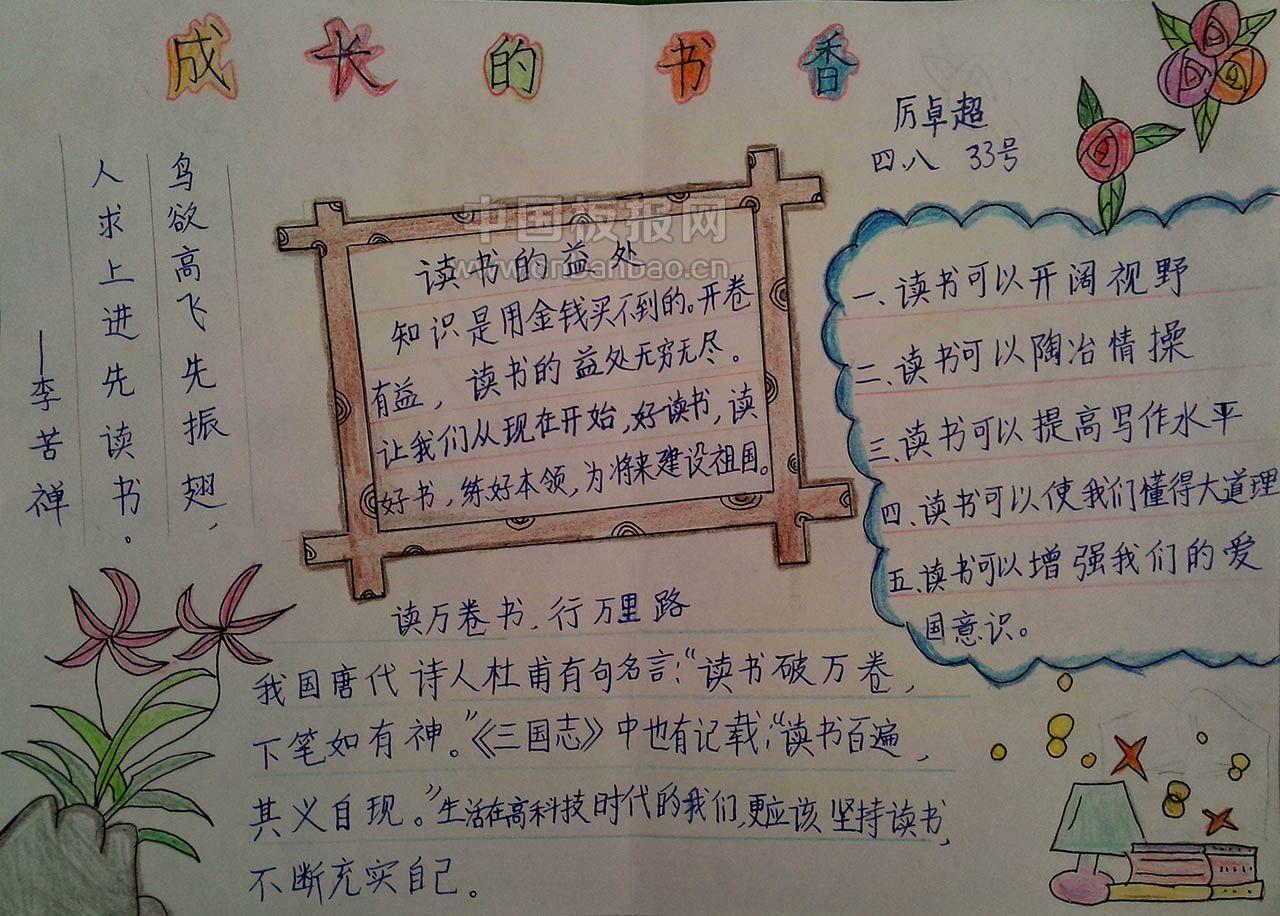 成长的书香
厉卓超
四.八 33号
鸟欲高飞先振翅，
人求上进先读书。
——李苦禅
中国板报网
www.onbanbao.cn
读书的益处
知识是用金钱买不到的。开卷
有益，读书的益处无穷无尽。
让我们从现在开始，好读书，读
好书，练好本领，为将来建设祖国。
一、读书可以开阔视野
二、读书可以陶冶情操
三、读书可以提高写作水平
四、读书可以使我们懂得大道理
五、读书可以增强我们的爱
国意识。
读万卷书，行万里路
我国唐代诗人杜甫有句名言：“读书破万卷，
下笔如有神。”《三国志》中也有记载：“读书百遍，
其义自现。”生活在高科技时代的我们，更应该坚持读书，
不断充实自己。